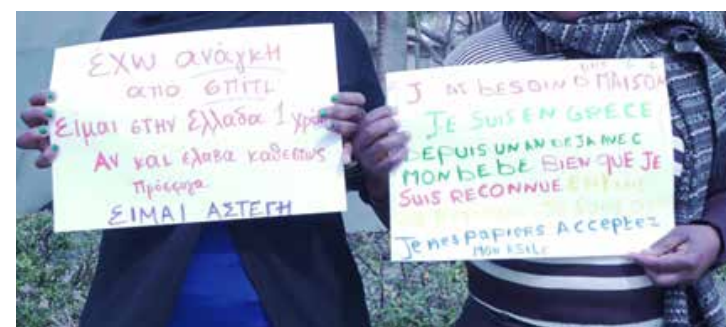 ΕΧω ανάγκη
απο σπίτι
Είμαι στην Ελλάδα 1
Αν και έλαβα καθεστως
Πρόσφυγα
ΕΙΜΑΙ ΑΣΤΕΓΗ
J AI BESOIN D MAISON
JE SUIS EN GRECE
DEPUIS UN AN DEJA AVEC
MON BEBE BIEN QUE JE
SUIS RECONNUE
Je nes papiers Acceptez
MON ASILE